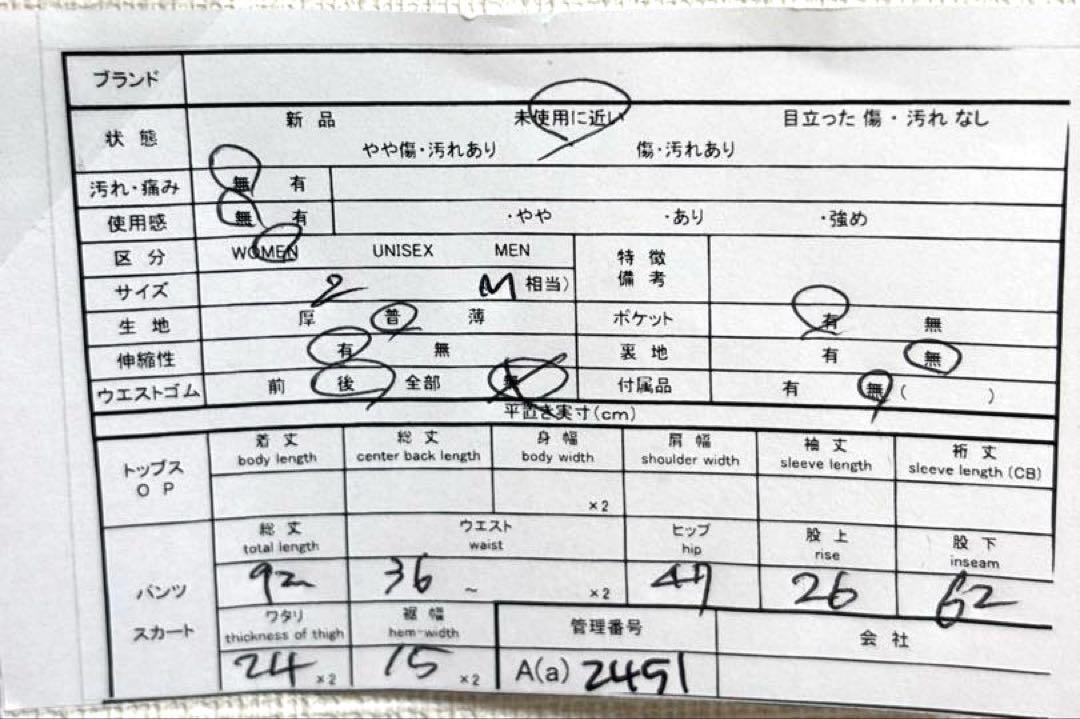 ブランド
状態 新品 未使用に近い 目立った 傷・汚れ なし
やや傷・汚れあり 傷・汚れあり
汚れ・痛み 無 有
使用感 無 有 ・やや ・あり ・強め
区分 WOMEN UNISEX MEN 特徴 備考
サイズ 2 M 相当)
生地 厚 普 薄 ポケット 有 無
伸縮性 有 無 裏地 有 無
ウエストゴム 前 後 全部 無 付属品 有 無 ( )
平置き実寸(cm)
トップス OP 着丈 総丈 身幅 肩幅 袖丈 裄丈
body length center back length body width shoulder width sleeve length sleeve length (CB)
×2
パンツ スカート 総丈 ウエスト ヒップ 股上 股下
total length waist hip rise inseam
92 36 ~ ×2 47 26 62
ワタリ 裾幅 管理番号 会社
thickness of thigh hem-width
24 ×2 15 ×2 A(a) 2491